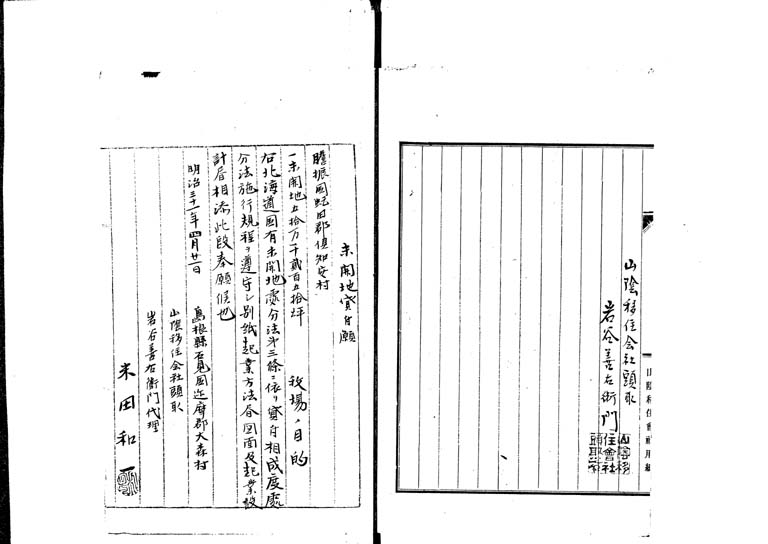 山陰移住会社頭取
岩谷善右衛門
山陰移住會社頭取之印
山陰移住會社用紙
未開地貸付願
膽振国虻田郡倶知安村
一未開地五拾万千貳百五拾坪 牧場ノ目的
右北海道国有未開地處分法第三條ニ依リ貸付相成度處
分法施行規程ヲ遵守シ別紙起業方法書図面及起業設
計書相添此段奉願候也
明治三十一年四月廿一日
島根縣石見国迩摩郡大森村
山陰移住会社頭取
岩谷善右衛門代理
米田和一